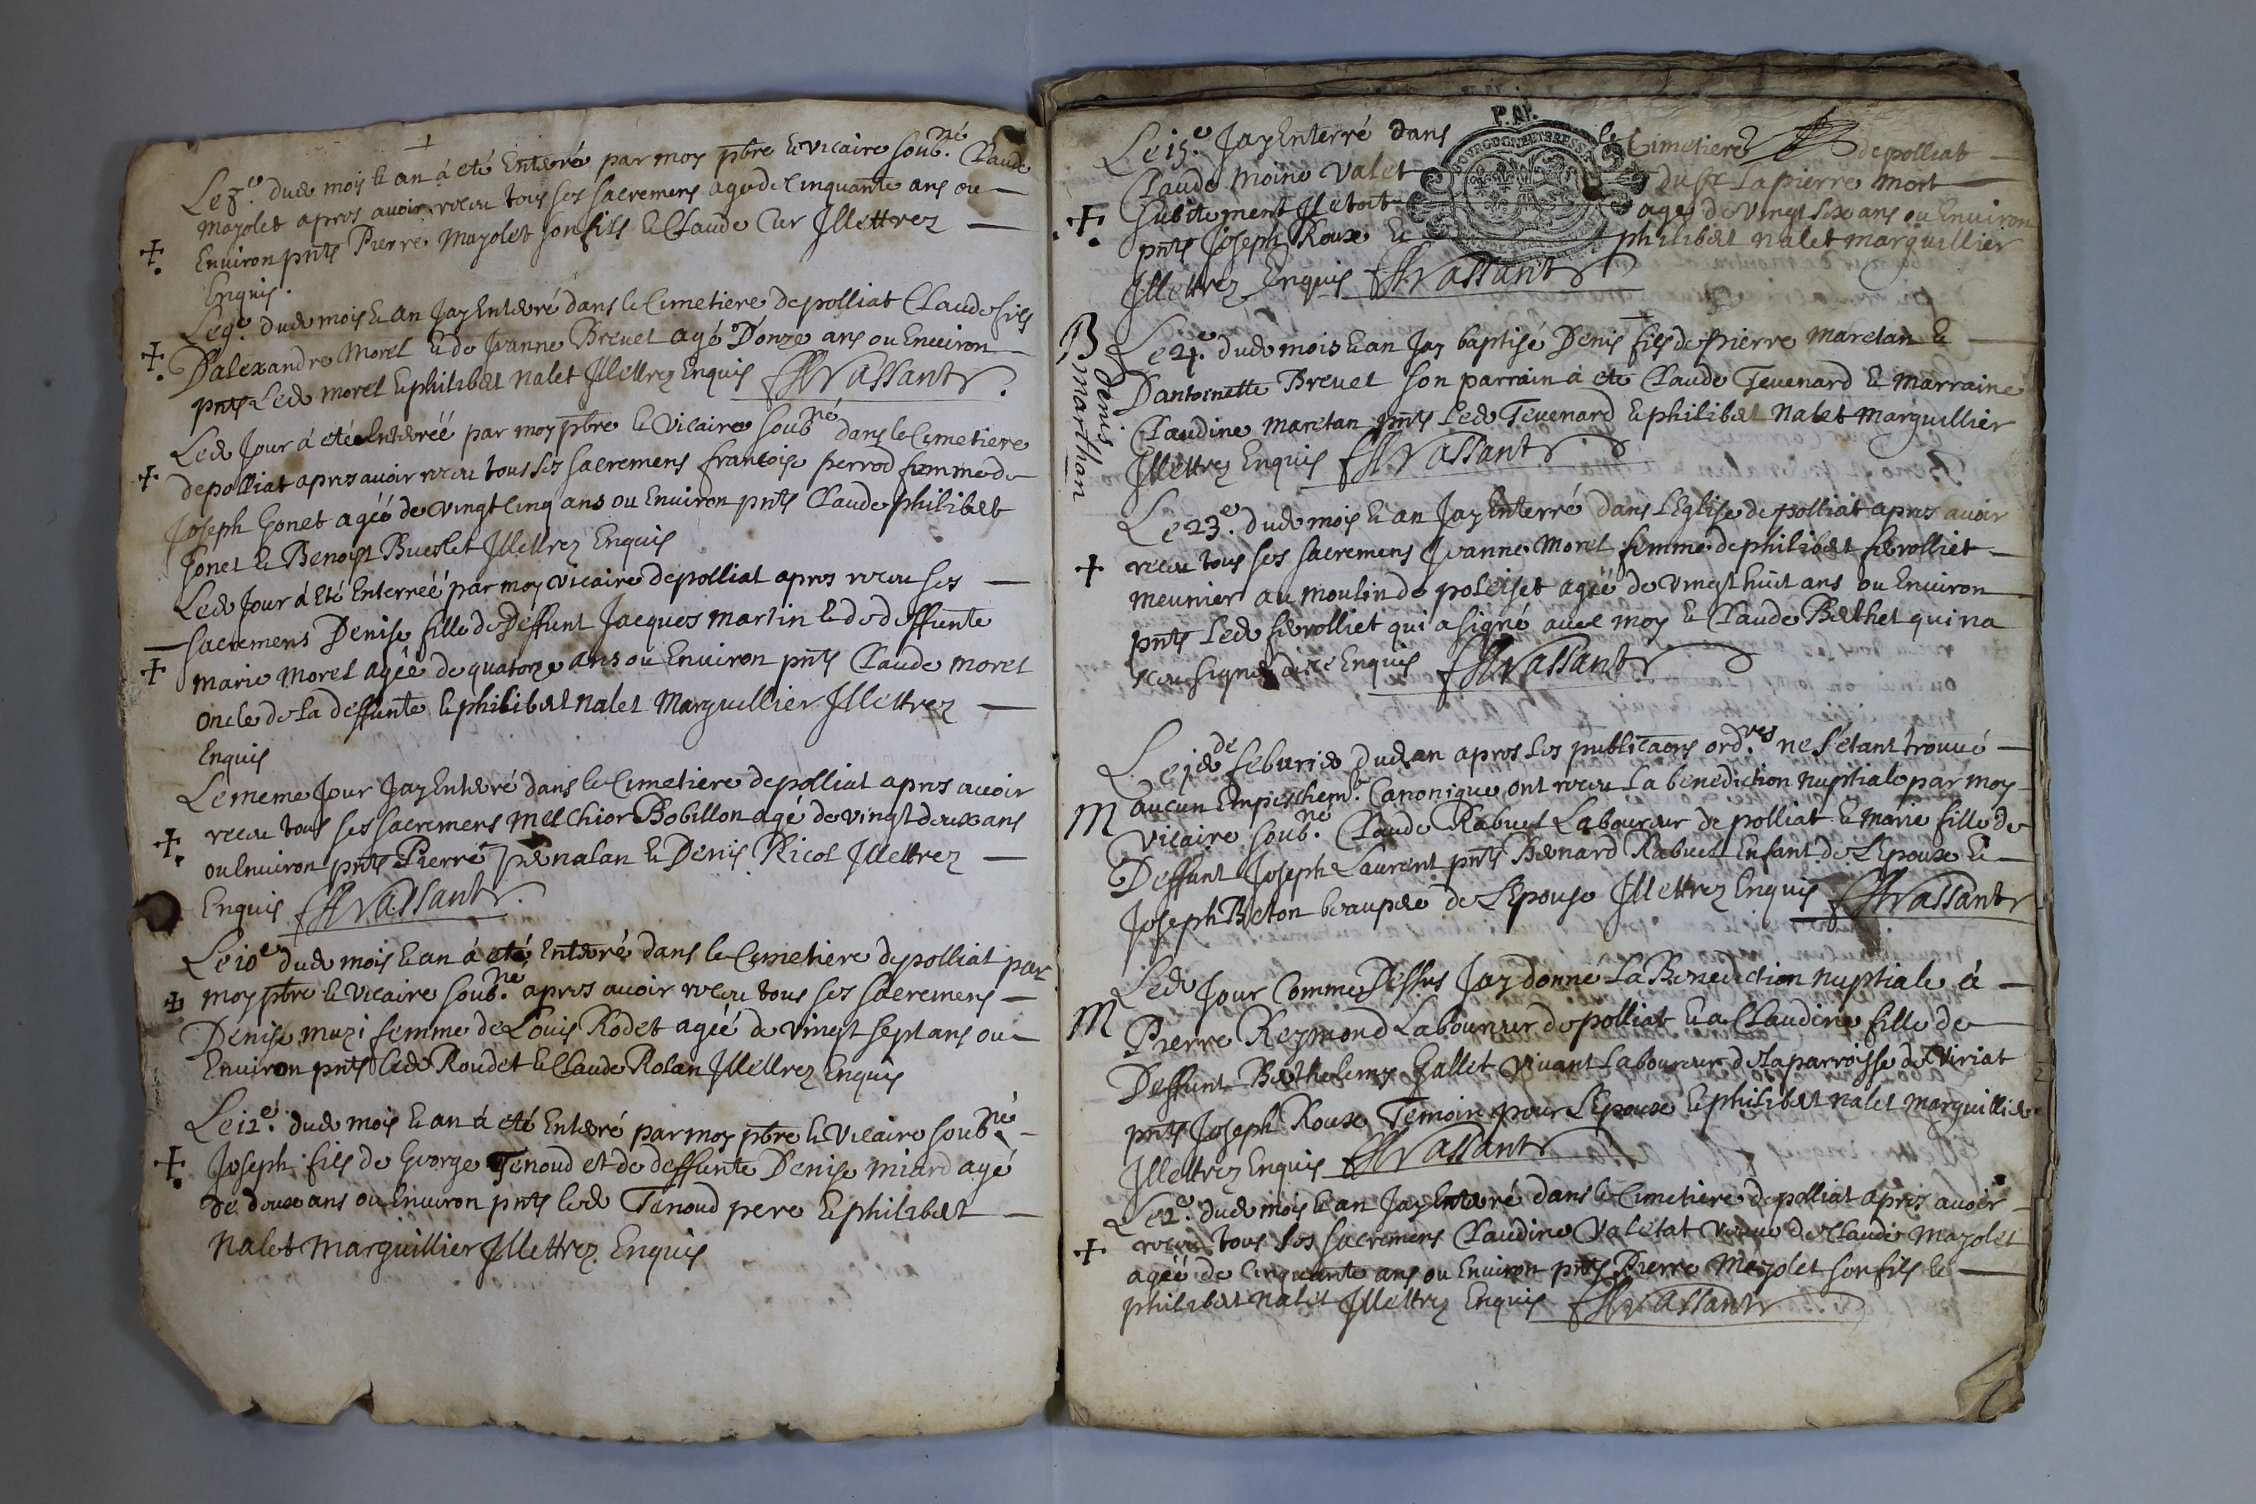 Le 7e dud mois & an á eté Enterré par moy pbre & vicaire soubné Claude
Mayolet apres avoir receu tous ses sacremens agé de Cinquante ans ou
Environ pnts Pierre Mayolet son fils & Claude Cur Illettrez
Enquis.
Le 9e dud mois & an Jay Enterré dans le Cimetiere de polliat Claude fils
D'alexandre Morel & de Jeanne Brevet agé D'onze ans ou Environ
pnts Led morel & philibert nalet Illettrez Enquis Vassant
Led Jour á eté Enterréé par moy pbre & Vicaire soubné dans le Cimetiere
de polliat apres avoir receu tous ses sacremens francoise perrod femme de
Joseph Gonet agéé de vingt Cinq ans ou Environ pnts Claude philibert
Gonet & Benoist Bueslet Illettrez Enquis
Led Jour á Eté Enterréé par moy vicaire de polliat apres receu ses
sacremens Denise fille de Deffunt Jacques martin & de deffunte
marie morel agéé de quatorze ans ou Environ pnts Claude morel
oncle de La deffunte & philibert nalet Marguillier Illettrez
Enquis
Le meme Jour Jay Enterré dans le Cimetiere de polliat apres avoir
receu tous ses sacremens Melchior Bobillon agé de vingt deux ans
ou Environ pnts Pierre penalan & Denis Ricol Illettrez
Enquis Vassant
Le 10e dud mois & an á eté Enterré dans le Cimetiere de polliat par
moy pbre & vicaire soubné apres avoir receu tous ses sacremens
Denise mazi femme de Louis Rodet agéé de vingt sept ans ou
Environ pnts led Roudet & Claude Rolan Illettrez Enquis
Le 12e dud mois & an á eté Enterré par moy pbre & Vicaire soubné
Joseph fils de George Tenoud et de deffunte Denise miard agé
de deux ans ou Environ pnts led Tenoud pere & philibert
nalet Marguillier Illettrez Enquis
P.AP.
BOURGOGNE ET BRESSE
Le 15e Jay Enterré dans le Cimetiere de polliat
Claude Moine Valet du Sr Lapierre mort
subitement Il étoit agé de vingt six ans ou Environ
pnts Joseph Roux & philibert nalet marguillier
Illettrez Enquis Vassant
B
Denis
Marthan
Le 21e dud mois & an Jay baptisé Denis fils de pierre Maretan &
D'antoinette Brevet son parrain á eté Claude Tevenard & Marraine
Claudine maretan pnts led Tevenard & philibert nalet marguillier
Illettrez Enquis Vassant
Le 23e dud mois & an Jay Enterré dans L'Eglise de polliat apres avoir
receu tous ses sacremens Jeanne Morel femme de philibert ferolliet
meunier au moulin de poleiset agéé de vingt huit ans ou Environ
pnts Led ferolliet qui a signé avec moy & Claude Berthet qui na
sceu signer de ce Enquis Vassant
M
Le 1d feburier dud an apres Les publicaons ordres ne s'étant trouvé
aucun Empeschemt Canonique ont receu La benediction nuptiale par moy
Vicaire soubné Claude Rabuel Laboureur de polliat & marie fille de
Deffunt Joseph Laurent pnts Bernard Rabuel Enfant de L'Epoux &
Joseph Breton beaupere de L'Epouse Illettrez Enquis Vassant
M
Led Jour Comme Dessus Jay donne La Benediction nuptiale á
Pierre Reymond Laboureur de polliat & a Claudine fille de
Deffunt Barthelemy Gallet Vivant Laboureur de la parroisse de Viriat
pnts Joseph Roux Temoin pour L'Epoux & philibert nalet marguillier
Illettrez Enquis Vassant
Le 2e dud mois & an Jay Enterré dans le Cimetiere de polliat apres avoir
receu tous ses sacremens Claudine Valetat veuve de Claude Mayolet
agéé de Cinquante ans ou Environ pnts Pierre Mayolet son fils &
philibert nalet Illettrez Enquis Vassant